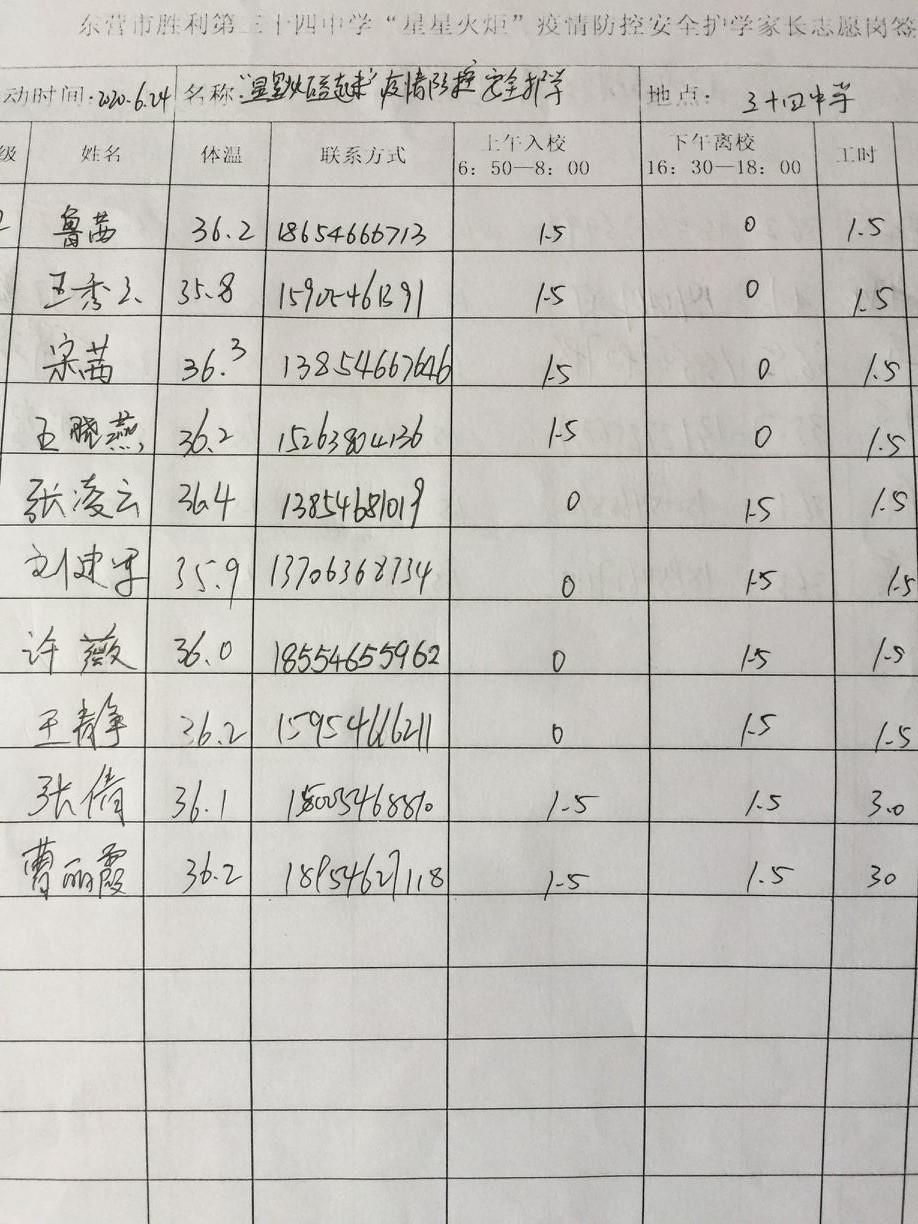 东营市胜利第三十四中学“星星火炬”疫情防控安全护学家长志愿岗签
动时间:2020.6.24 名称: 疫情防控安全护学 地点: 三十四中学
级 姓名 体温 联系方式 上午入校 6:50—8:00 下午离校 16:30—18:00 工时
鲁茜 36.2 18654666713 1.5 0 1.5
王秀 35.8 15905461391 1.5 0 1.5
宋茜 36.3 13854667646 1.5 0 1.5
王晓燕 36.2 15263804136 1.5 0 1.5
张凌云 36.4 13854681019 0 1.5 1.5
刘建军 35.9 13706368734 0 1.5 1.5
许薇 36.0 18554655962 0 1.5 1.5
王静 36.2 15954666211 0 1.5 1.5
张倩 36.1 1.5 1.5 3.0
曹丽霞 36.2 1.5 1.5 30